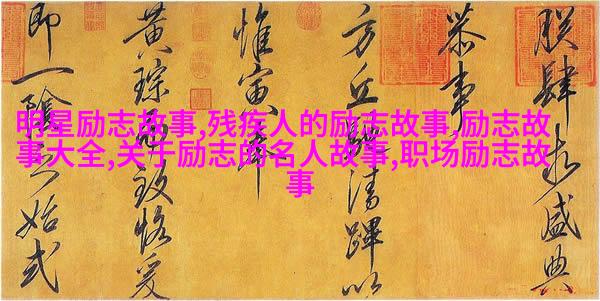 明星励志故事,残疾人的励志故事,励志故
事大全,关于励志的名人故事,职场励志故
事
朕肆求盛典
恭事
方丘清蹕以
惟寅
黄琮致恪爰
即一陰之始式